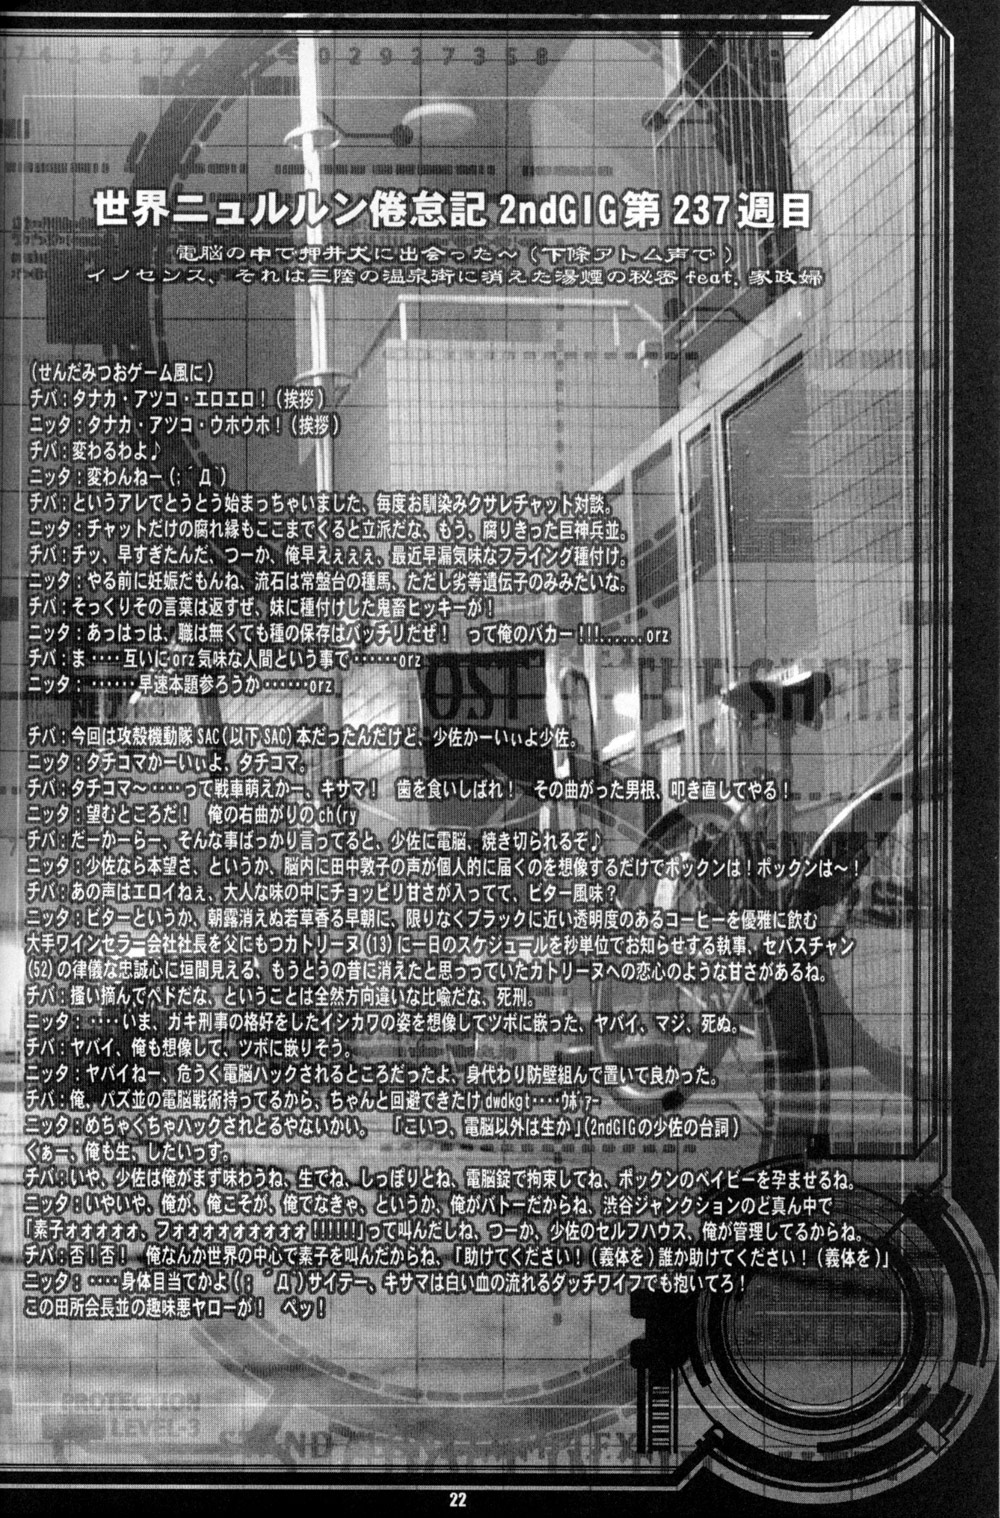 世界ニュルルン倦怠記 2ndGIG 第 237 週目
電脳の中で押井犬に出会った～（下條アトム声で）
イノセンス、それは三陸の温泉街に消えた湯煙の秘密 feat. 家政婦
(せんだみつおゲーム風に)
チバ：タナカ・アツコ・エロエロ！(挨拶)
ニッタ：タナカ・アツコ・ウホウホ！(挨拶)
チバ：変わるわよ♪
ニッタ：変わんねー(；´Д`)
チバ：というアレでとうとう始まっちゃいました、毎度お馴染みクサレチャット対談。
ニッタ：チャットだけの腐れ縁もここまでくると立派だな、もう、腐りきった巨神兵並。
チバ：チッ、早すぎたんだ、つーか、俺早えぇぇぇ、最近早漏気味なフライング種付け。
ニッタ：やる前に妊娠だもんね、流石は常盤台の種馬、ただし劣等遺伝子のみみたいな。
チバ：そっくりその言葉は返すぜ、妹に種付けした鬼畜ヒッキーが！
ニッタ：あっはっは、職は無くても種の保存はバッチリだぜ！　って俺のバカー！！！……orz
チバ：ま‥‥互いにorz気味な人間という事で‥‥…orz
ニッタ：‥‥…早速本題参ろうか‥‥…orz
チバ：今回は攻殻機動隊SAC(以下SAC)本だったんだけど、少佐かーいぃよ少佐。
ニッタ：タチコマかーいぃよ、タチコマ。
チバ：タチコマ～‥‥って戦車萌えかー、キサマ！　歯を食いしばれ！　その曲がった男根、叩き直してやる！
ニッタ：望むところだ！　俺の右曲がりのch(ry
チバ：だーかーらー、そんな事ばっかり言ってると、少佐に電脳、焼き切られるぞ♪
ニッタ：少佐なら本望さ、というか、脳内に田中敦子の声が個人的に届くのを想像するだけでボックンは！ボックンは～！
チバ：あの声はエロイねぇ、大人な味の中にチョッピリ甘さが入ってて、ビター風味？
ニッタ：ビターというか、朝露消えぬ若草香る早朝に、限りなくブラックに近い透明度のあるコーヒーを優雅に飲む
大手ワインセラー会社社長を父にもつカトリーヌ(13)に一日のスケジュールを秒単位でお知らせする執事、セバスチャン
(52)の律儀な忠誠心に垣間見える、もうとうの昔に消えたと思っっていたカトリーヌへの恋心のような甘さがあるね。
チバ：掻い摘んでペドだな、ということは全然方向違いな比喩だな、死刑。
ニッタ：‥‥いま、ガキ刑事の格好をしたイシカワの姿を想像してツボに嵌った、ヤバイ、マジ、死ぬ。
チバ：ヤバイ、俺も想像して、ツボに嵌りそう。
ニッタ：ヤバイねー、危うく電脳ハックされるところだったよ、身代わり防壁組んで置いて良かった。
チバ：俺、パズ並の電脳戦術持ってるから、ちゃんと回避できたけdwdkgt‥‥ｳﾎﾞｧｰ
ニッタ：めちゃくちゃハックされとるやないかい。　「こいつ、電脳以外は生か」(2ndGIGの少佐の台詞)
くぁー、俺も生、したいっす。
チバ：いや、少佐は俺がまず味わうね、生でね、しっぽりとね、電脳錠で拘束してね、ボックンのベイビーを孕ませるね。
ニッタ：いやいや、俺が、俺こそが、俺でなきゃ、というか、俺がバトーだからね、渋谷ジャンクションのど真ん中で
「素子ォォォォォ、フォォォォォォォォォ！！！！！！」って叫んだしね、つーか、少佐のセルフハウス、俺が管理してるからね。
チバ：否！否！　俺なんか世界の中心で素子を叫んだからね、「助けてください！(義体を)誰か助けてください！(義体を)」
ニッタ：‥‥身体目当てかよ(；´Д`)サイテー、キサマは白い血の流れるダッチワイフでも抱いてろ！
この田所会長並の趣味悪ヤローが！　ペッ！
PROTECTION
LEVEL-3
22